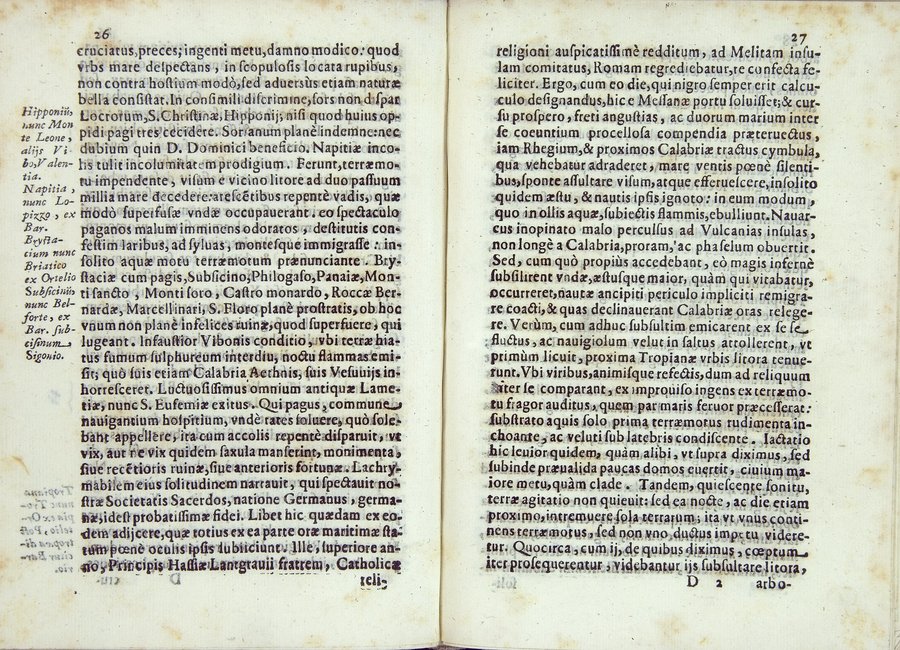 26
cruciatus, preces; ingenti metu, damno modico: quod
vrbs mare despectans, in scopulosis locata rupibus,
non contra hostium modò, sed aduersus etiam naturæ
bella consistat. In consimili discrimine, sors non dispar
Locrorum, S. Christinæ, Hipponij, nisi quod huius op-
pidi pagi tres cecidere. Sorianum planè indemne: nec
dubium quin D. Dominici beneficio. Napitiæ inco-
lis tulit incolumitatem prodigium. Ferunt, terræmo-
tu impendente, visum e vicino litore ad duo passuum
millia mare decedere: arescētibus repentè vadis, quæ
modò superfusæ vndæ occupauerant. eo spectaculo
paganos malum imminens odoratos, destitutis con-
festim laribus, ad syluas, montesque immigrasse: in-
solito aquæ motu terræmotum prænunciante. Bry-
staciæ cum pagis, Subsicino, Philogaso, Panaiæ, Mon-
ti sancto, Monti soro, Castro monardo, Roccæ Ber-
nardæ, Marcellinari, S. Floro planè prostratis, ob hoc
vnum non planè infelices ruinæ, quod superfuere, qui
lugeant. Infaustior Vibonis conditio, vbi terræ hia-
tus fumum sulphureum interdiu, noctu flammas emi-
sit; quò suis etiam Calabria Aethnis, suis Vesuuijs in-
horresceret. Luctuosissimus omnium antiquæ Lame-
tiæ, nunc S. Eufemiæ exitus. Qui pagus, commune
nauigantium hospitium, vndè rates soluere, quò sole-
bant appellere, ita cum accolis repentè disparuit, vt
vix, aut ne vix quidem saxula manserint, monimenta,
siue recētioris ruinæ, siue anterioris fortunæ. Lachry-
mabilem eius solitudinem narrauit, qui spectauit no-
stræ Societatis Sacerdos, natione Germanus, germa-
næ, idest probatissimæ fidei. Libet hic quædam ex eo-
dem adijcere, quæ totius ex ea parte oræ maritimæ sta-
tum pœne oculis ipsis subijciunt. Ille, superiore an-
no, Principis Hassiæ Lantgrauij fratrem, Catholicæ
reli-
Hipponiū,
nunc Mon
te Leone,
alijs Vi
bo, Valen-
tia.
Napitia,
nunc Lo-
pizzo, ex
Bar.
Brysta-
cium nunc
Briatico
ex Ortelio
Subsiciniū
nunc Bel-
forte, ex
Bar. sub-
cisinum
Sigonio.
27
religioni auspicatissimè redditum, ad Melitam insu-
lam comitatus, Romam regrediebatur, re confecta fe-
liciter. Ergo, cum eo die, qui nigro semper erit calcu-
culo designandus, hic e Messanæ portu soluisset; & cur-
su prospero, freti angustias, ac duorum marium inter
se coeuntium procellosa compendia præteruectus,
iam Rhegium, & proximos Calabriæ tractus cymbula,
qua vehebatur adraderet, mare ventis pœnè silenti-
bus, sponte assultare visum, atque efferuescere, insolito
quidem æstu, & nautis ipsis ignoto: in eum modum,
quo in ollis aquæ, subiectis flammis, ebulliunt. Nauar-
cus inopinato malo perculsus ad Vulcanias insulas,
non longè a Calabria, proram, ac phaselum obuertit.
Sed, cum quò propiùs accedebant, eò magis infernè
subsilirent vndæ, æstusque maior, quàm qui vitabatur,
occurreret, nautæ ancipiti periculo impliciti remigra-
re coacti, & quas declinauerant Calabriæ oras relege-
re. Verùm, cum adhuc subsultim emicarent ex se se
fluctus, ac nauigiolum velut in saltus attollerent, vt
primùm licuit, proxima Tropianæ vrbis litora tenue-
runt. Vbi viribus, animisque refectis, dum ad reliquum
iter se comparant, ex improuiso ingens ex terræmo-
tu fragor auditus, quem par maris feruor præcesserat:
substrato aquis solo prima terræmotus rudimenta in-
choante, ac veluti sub latebris condiscente. Iactatio
hic leuior quidem, quàm alibi, vt supra diximus, sed
subinde præualida paucas domos euertit, ciuium ma-
iore metu, quàm clade. Tandem, quiescente sonitu,
terræ agitatio non quieuit: sed ea nocte, ac die etiam
proximo, intremuere sola terrarum; ita vt vnus conti-
nens terræmotus, sed non vno ductus impetu videre-
tur. Quocirca, cum ij, de quibus diximus, cœptum
iter prosequerentur, videbantur ijs subsultare litora,
D 2 arbo-